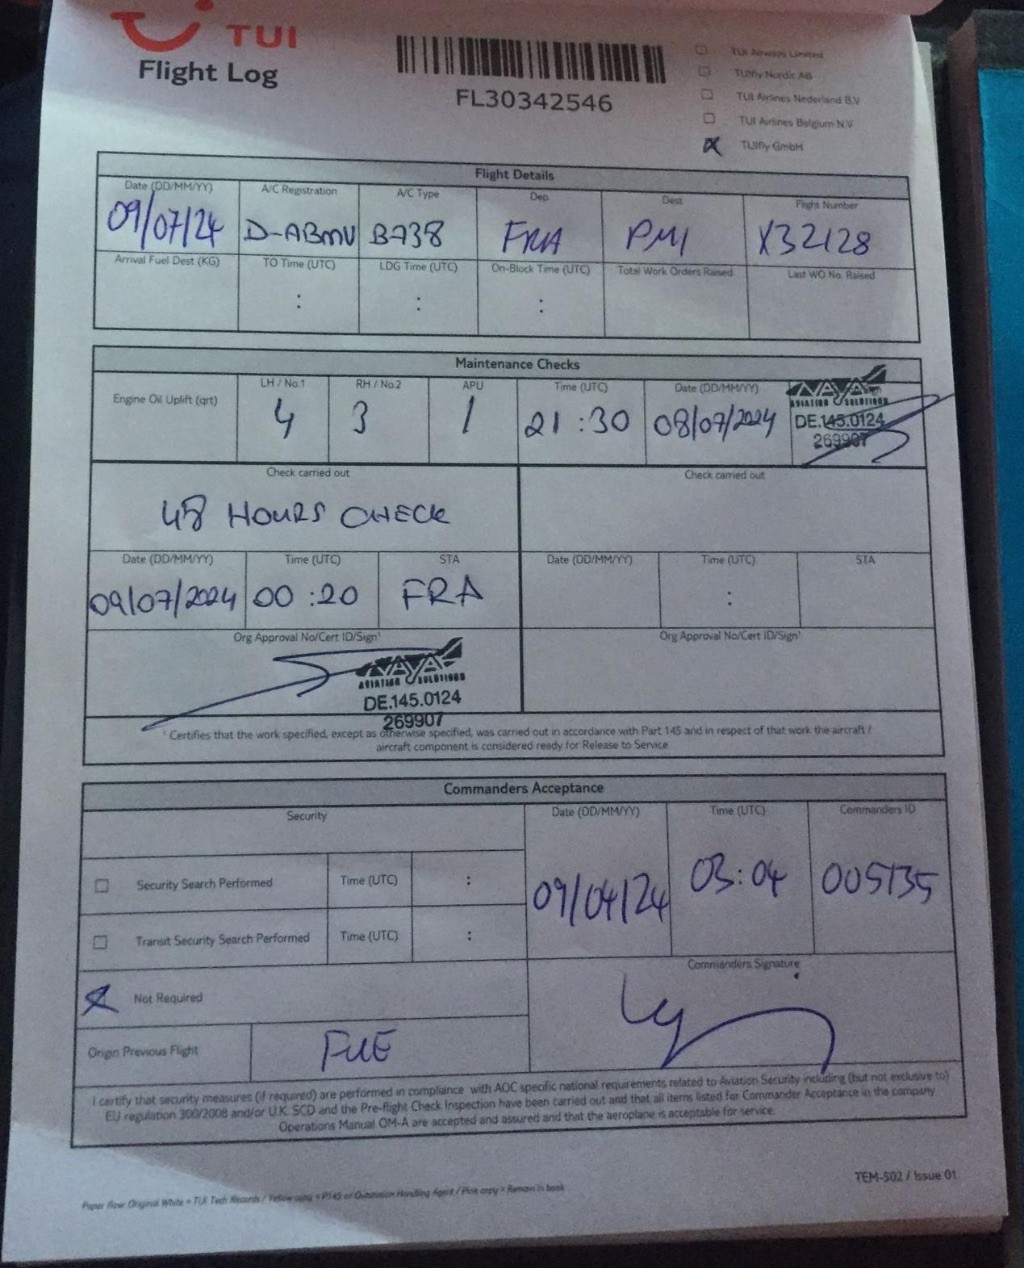 TUI
Flight Log
FL30342546
TUI Airways Limited
TUIfly Nordic AB
TUI Airlines Nederland B.V
TUI Airlines Belgium N.V
X TUIfly GmbH
Flight Details
Date (DD/MM/YY) A/C Registration A/C Type Dep Dest Flight Number
09/07/24 D-ABMV B738 FRA PMI X32128
Arrival Fuel Dest (KG) TO Time (UTC) LDG Time (UTC) On-Block Time (UTC) Total Work Orders Raised Last WO No. Raised
: : :
Maintenance Checks
Engine Oil Uplift (qrt) LH / No.1 RH / No.2 APU Time (UTC) Date (DD/MM/YY)
4 3 1 21:30 08/07/2024
NAYAK
AVIATION SOLUTIONS
DE.145.0124
269907
Check carried out Check carried out
48 HOURS CHECK
Date (DD/MM/YY) Time (UTC) STA Date (DD/MM/YY) Time (UTC) STA
09/07/2024 00:20 FRA :
Org Approval No/Cert ID/Sign¹ Org Approval No/Cert ID/Sign¹
NAYAK
AVIATION SOLUTIONS
DE.145.0124
269907
¹ Certifies that the work specified, except as otherwise specified, was carried out in accordance with Part 145 and in respect of that work the aircraft /
aircraft component is considered ready for Release to Service
Commanders Acceptance
Security Date (DD/MM/YY) Time (UTC) Commanders ID
09/04/24 03:04 005135
Security Search Performed Time (UTC) :
Transit Security Search Performed Time (UTC) :
Commanders Signature
X Not Required
Origin Previous Flight FUE
I certify that security measures (if required) are performed in compliance with AOC specific national requirements related to Aviation Security including (but not exclusive to)
EU regulation 300/2008 and/or U.K. SCD and the Pre-flight Check Inspection have been carried out and that all items listed for Commander Acceptance in the company
Operations Manual OM-A are accepted and assured and that the aeroplane is acceptable for service.
TEM-502 / Issue 01
Paper flow: Original White = TUI Tech Records / Yellow copy = P145 or Outstation Handling Agent / Pink copy = Remain in book